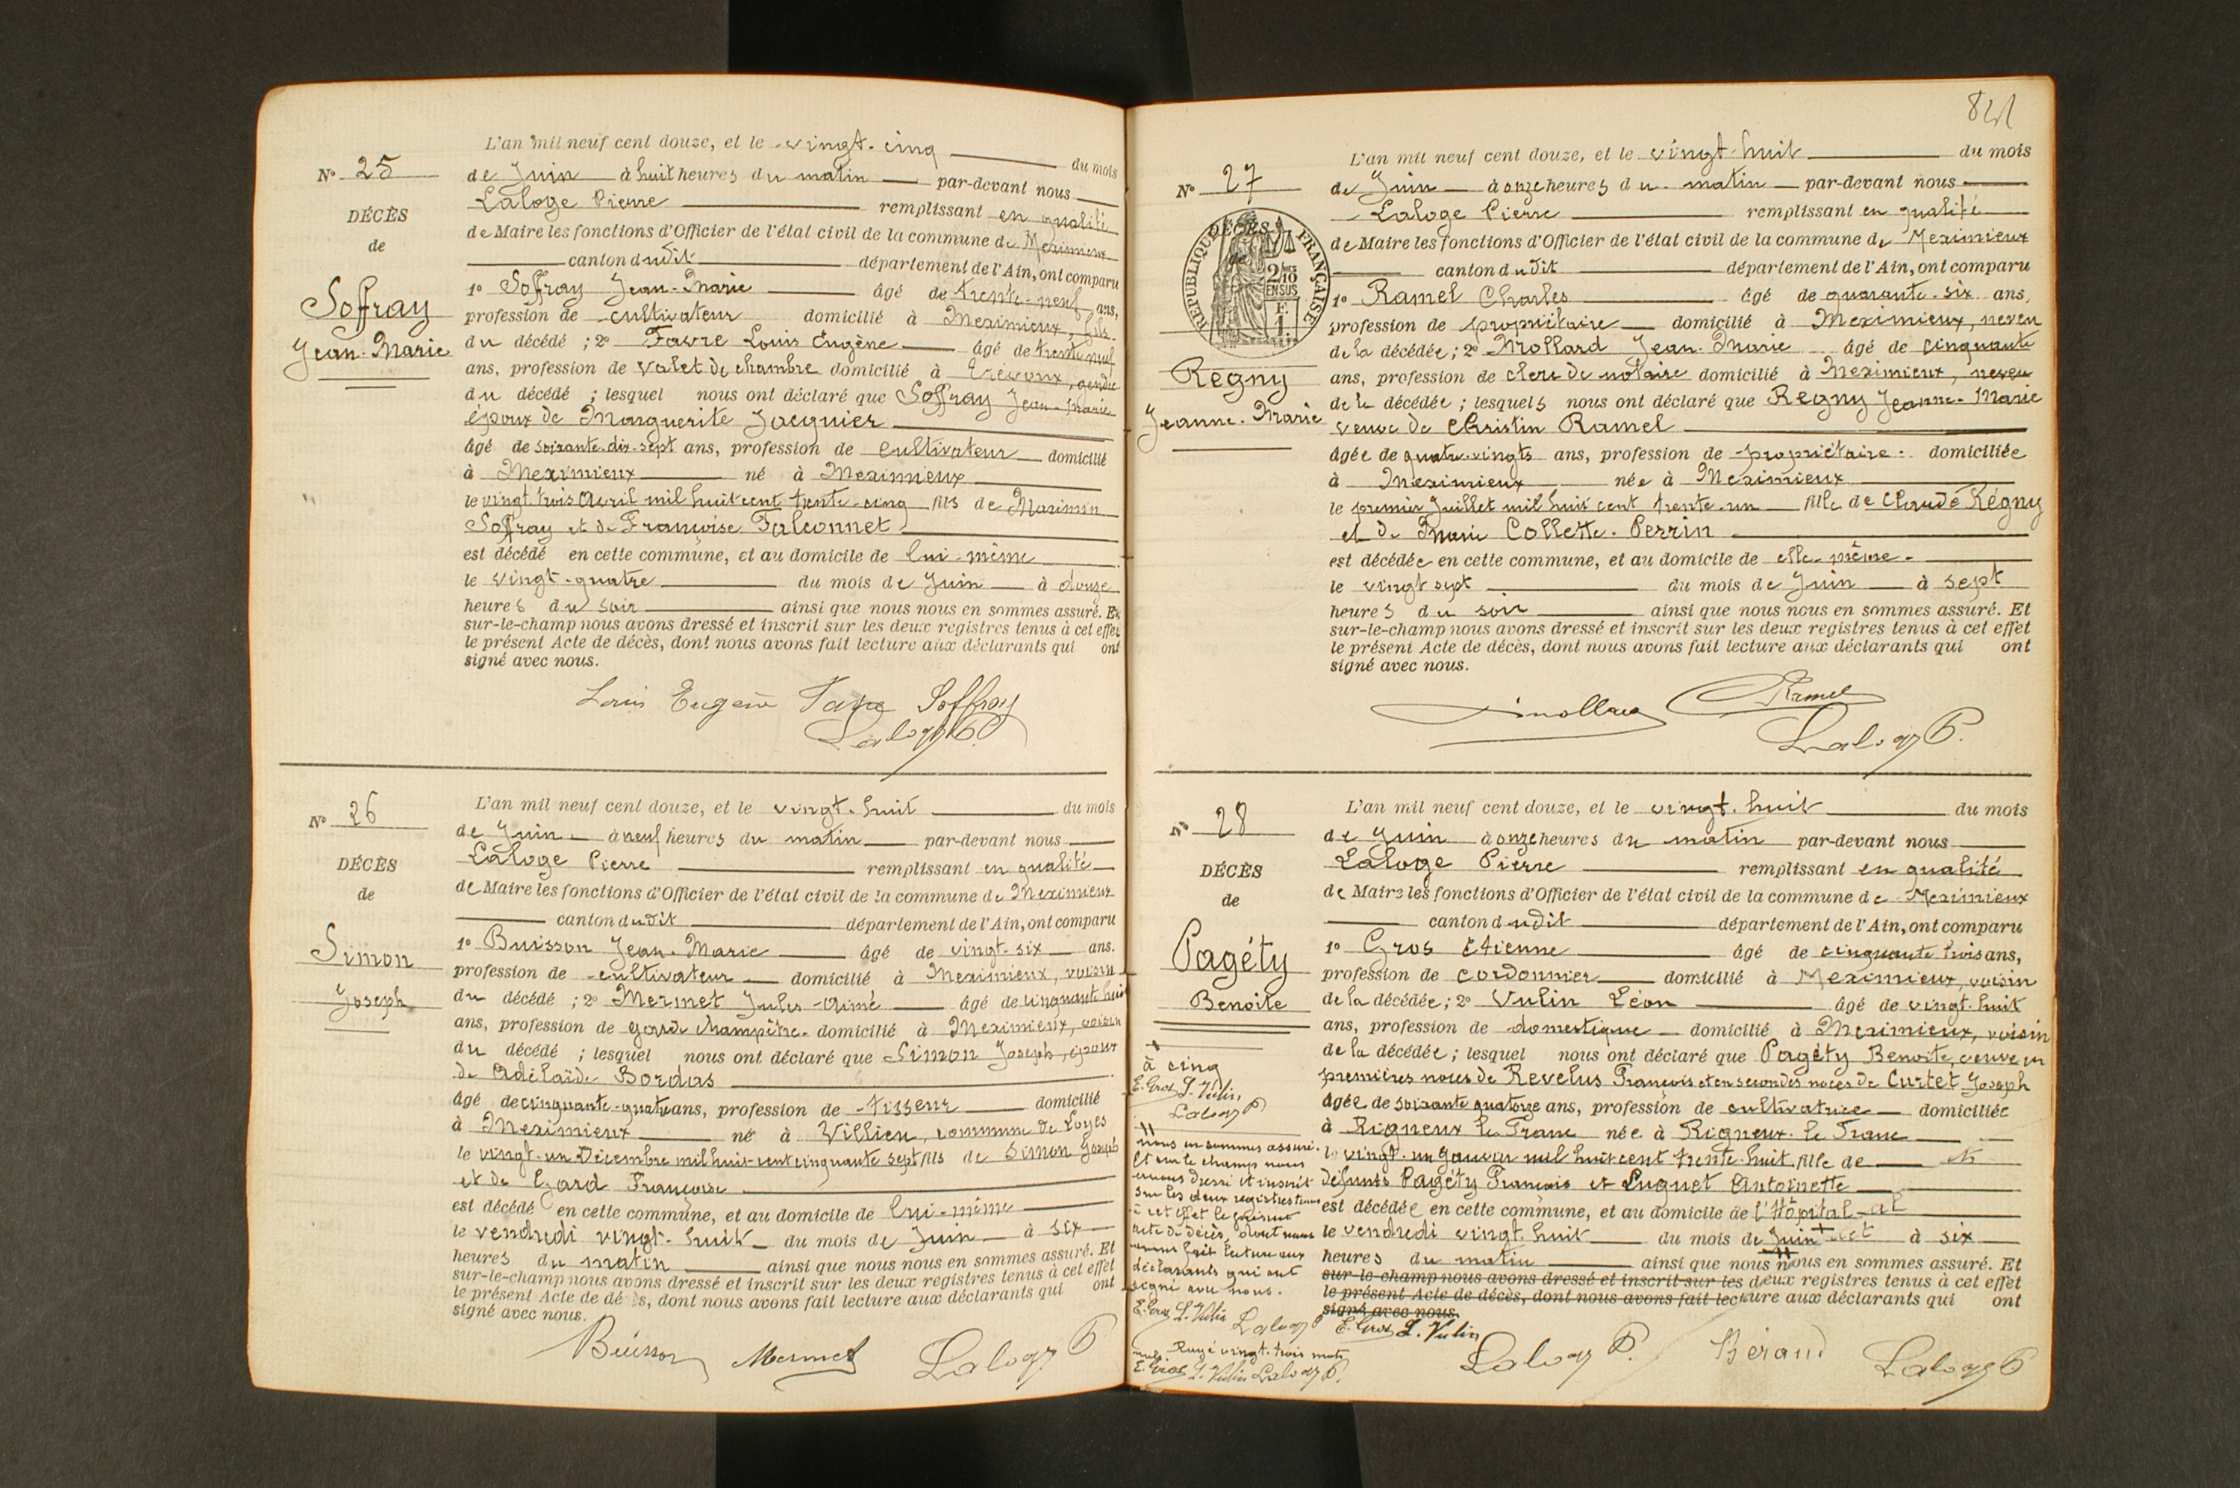 N° 25
DÉCÈS
de
Soffray
Jean-Marie
L'an mil neuf cent douze, et le vingt-cinq du mois
de Juin à huit heures du matin par-devant nous
Laloge Pierre remplissant en qualité
de Maire les fonctions d'Officier de l'état civil de la commune de Meximieux
canton dudit département de l'Ain, ont comparu
1° Soffray Jean-Marie âgé de trente-neuf ans,
profession de cultivateur domicilié à Meximieux, fils
du décédé ; 2° Favre Louis Eugène âgé de trente neuf
ans, profession de valet de chambre domicilié à Trévoux, gendre
du décédé ; lesquel nous ont déclaré que Soffray Jean-Marie
époux de Marguerite Jacquier
âgé de soixante-dix-sept ans, profession de cultivateur domicilié
à Meximieux né à Meximieux
le vingt trois avril mil huit cent trente-cinq fils de Maximin
Soffray et de Françoise Falconnet
est décédé en cette commune, et au domicile de lui-même
le vingt-quatre du mois de Juin à douze
heures du soir ainsi que nous nous en sommes assuré. Et
sur-le-champ nous avons dressé et inscrit sur les deux registres tenus à cet effet
le présent Acte de décès, dont nous avons fait lecture aux déclarants qui ont
signé avec nous.
Louis Eugène Favre Soffray
Laloge P.
N° 26
DÉCÈS
de
Simon
Joseph
L'an mil neuf cent douze, et le vingt-huit du mois
de Juin à neuf heures du matin par-devant nous
Laloge Pierre remplissant en qualité
de Maire les fonctions d'Officier de l'état civil de la commune de Meximieux
canton dudit département de l'Ain, ont comparu
1° Buisson Jean-Marie âgé de vingt-six ans.
profession de cultivateur domicilié à Meximieux, voisin
du décédé ; 2° Mermet Jules-Aimé âgé de cinquante huit
ans, profession de garde champêtre domicilié à Meximieux, voisin
du décédé ; lesquel nous ont déclaré que Simon Joseph, époux
de Adélaïde Bordas
âgé de cinquante-quatre ans, profession de tisseur domicilié
à Meximieux né à Villieu, commune de Loyes
le vingt-un Décembre mil huit-cent cinquante sept fils de Simon Joseph
et de Françoise
est décédé en cette commune, et au domicile de lui-même
le vendredi vingt-huit du mois de Juin à six
heures du matin ainsi que nous nous en sommes assuré. Et
sur-le-champ nous avons dressé et inscrit sur les deux registres tenus à cet effet
le présent Acte de dé s, dont nous avons fait lecture aux déclarants qui ont
signé avec nous.
Buisson Mermet Laloge P
N° 27
DÉCÈS
de
RÉPUBLIQUE FRANÇAISE
2/10 EN SUS
Regny
Jeanne-Marie
L'an mil neuf cent douze, et le vingt-huit du mois
de Juin à onze heures du matin par-devant nous
Laloge Pierre remplissant en qualité
de Maire les fonctions d'Officier de l'état civil de la commune de Meximieux
canton dudit département de l'Ain, ont comparu
1° Ramel Charles âgé de quarante-six ans,
profession de propriétaire domicilié à Meximieux, neveu
de la décédée ; 2° Mollard Jean-Marie âgé de cinquante
ans, profession de clerc de notaire domicilié à Meximieux, neveu
de la décédée ; lesquels nous ont déclaré que Regny Jeanne-Marie
veuve de Christin Ramel
âgée de quatre-vingts ans, profession de propriétaire domiciliée
à Meximieux née à Meximieux
le premier Juillet mil huit cent trente-un fille de Claude Régny
et de Marie Collette Perrin
est décédée en cette commune, et au domicile de elle-même
le vingt sept du mois de Juin à sept
heures du soir ainsi que nous nous en sommes assuré. Et
sur-le-champ nous avons dressé et inscrit sur les deux registres tenus à cet effet
le présent Acte de décès, dont nous avons fait lecture aux déclarants qui ont
signé avec nous.
Mollard Ramel
Laloge P.
N° 28
DÉCÈS
de
Pagéty
Benoite
L'an mil neuf cent douze, et le vingt-huit du mois
de Juin à onze heures du matin par-devant nous
Laloge Pierre remplissant en qualité
de Maire les fonctions d'Officier de l'état civil de la commune de Meximieux
canton dudit département de l'Ain, ont comparu
1° Gros Etienne âgé de cinquante trois ans,
profession de cordonnier domicilié à Meximieux, voisin
de la décédée ; 2° Vulin Léon âgé de vingt-huit
ans, profession de domestique domicilié à Meximieux, voisin
de la décédée ; lesquel nous ont déclaré que Pagéty Benoite, veuve en
premières noces de Revelus François et en secondes noces de Curtet Joseph
âgée de soixante quatorze ans, profession de cultivatrice domiciliée
à Rigneux le Franc née à Rigneux-le Franc
le vingt-un Janvier mil huit cent trente-huit fille de
défunts Pagéty François et Luguet Antoinette
est décédée en cette commune, et au domicile de l'Hôpital
le vendredi vingt-huit du mois de Juin à six
heures du matin ainsi que nous nous en sommes assuré. Et
sur-le-champ nous avons dressé et inscrit sur les deux registres tenus à cet effet
le présent Acte de décès, dont nous avons fait lecture aux déclarants qui ont
signé avec nous.
E. Gros L. Vulin
Laloge P. Béraud Laloge P
à cinq
E. Gros L. Vulin
Laloge P
nous en sommes assuré.
Et sur le champ nous
avons dressé et inscrit
sur les deux registres tenus
à cet effet le présent
acte de décès, dont nous
avons fait lecture aux
déclarants qui ont
signé avec nous.
E. Gros L. Vulin Laloge P
Rayé vingt-trois mots
E. Gros L. Vulin Laloge P.